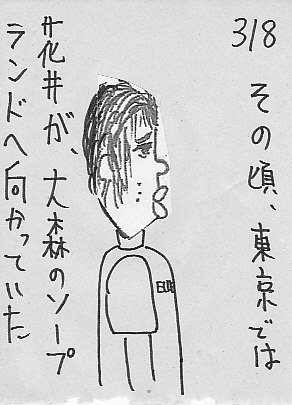 318
その頃、東京では
花井が、大森のソープ
ランドへ向かっていた